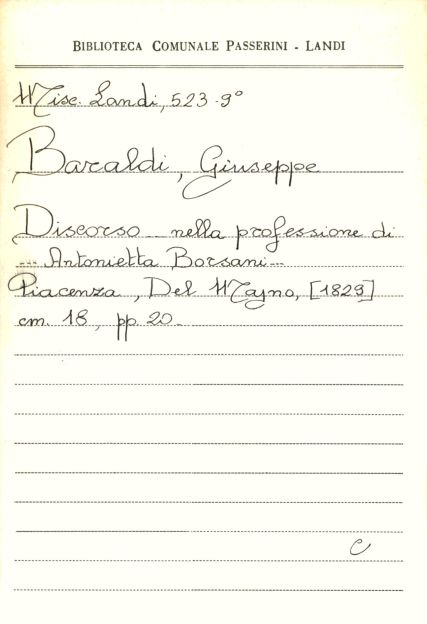 BIBLIOTECA COMUNALE PASSERINI - LANDI
Misc. Landi, 523-9°
Baraldi, Giuseppe
Discorso .. nella professione di
--- Antonietta Borsani ---
Piacenza, Del Majno, [1829]
cm. 18, pp. 20
C